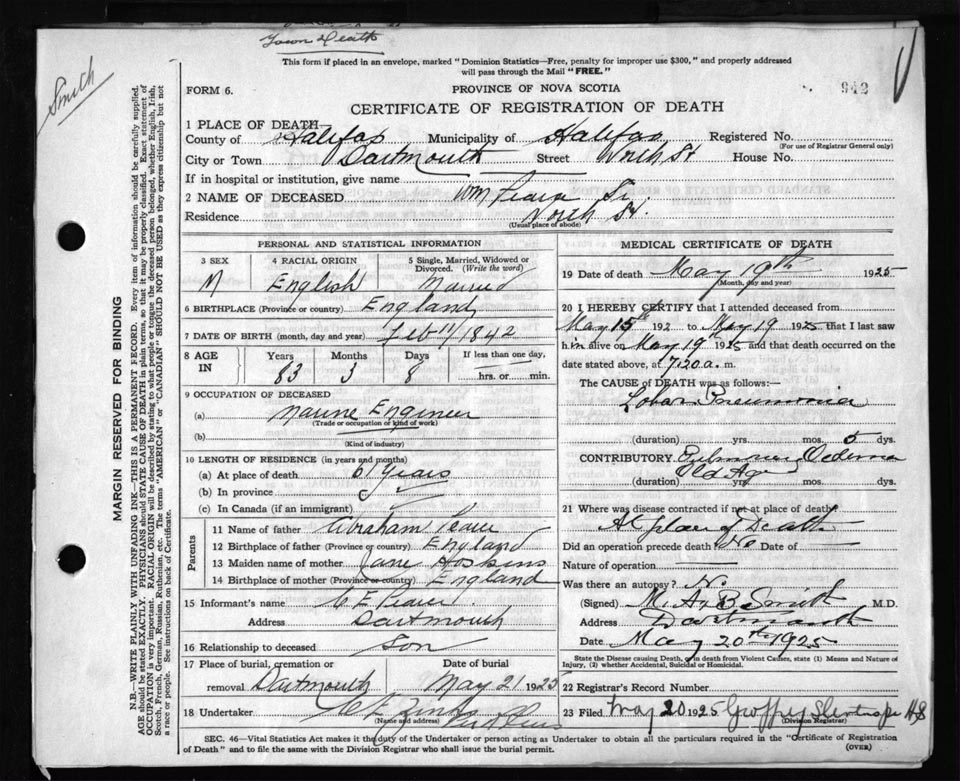 Town Death
Smith
This form if placed in an envelope, marked "Dominion Statistics—Free, penalty for improper use $300," and properly addressed
will pass through the Mail "FREE."
FORM 6.
PROVINCE OF NOVA SCOTIA
942
CERTIFICATE OF REGISTRATION OF DEATH
1 PLACE OF DEATH—
County of Halifax Municipality of Halifax Registered No.
(For use of Registrar General only)
City or Town Dartmouth Street North St House No.
If in hospital or institution, give name
2 NAME OF DECEASED Wm Pearce Sr.
Residence North St.
(Usual place of abode)
MARGIN RESERVED FOR BINDING
N.B.—WRITE PLAINLY WITH UNFADING INK—THIS IS A PERMANENT RECORD. Every item of information should be carefully supplied.
AGE should be stated EXACTLY. PHYSICIANS should STATE CAUSE OF DEATH in plain terms, so that it may be properly classified. Exact statement of
OCCUPATION is very important. RACIAL ORIGIN will be described by stating to what people or tongue the deceased person belonged, whether English, Irish,
Scotch, French, German, Russian, Ruthenian, etc. The terms "AMERICAN" or "CANADIAN" SHOULD NOT BE USED as they express citizenship but not
a race or people. See instructions on back of Certificate.
PERSONAL AND STATISTICAL INFORMATION
3 SEX
M
4 RACIAL ORIGIN
English
5 Single, Married, Widowed or
Divorced. (Write the word)
Married
6 BIRTHPLACE (Province or country) England
7 DATE OF BIRTH (month, day and year) Feb 11/1842
8 AGE
IN
Years Months Days If less than one day,
83 3 8 hrs. or min.
9 OCCUPATION OF DECEASED
(a) Marine Engineer
(Trade or occupation or kind of work)
(b)
(Kind of industry)
10 LENGTH OF RESIDENCE (in years and months)
(a) At place of death 61 years
(b) In province
(c) In Canada (if an immigrant)
Parents
11 Name of father Abraham Pearce
12 Birthplace of father (Province or country) England
13 Maiden name of mother Jane Hoskins
14 Birthplace of mother (Province or country) England
15 Informant's name C E Pearce
Address Dartmouth
16 Relationship to deceased Son
17 Place of burial, cremation or
removal Dartmouth
Date of burial
May 21 1925
18 Undertaker
MEDICAL CERTIFICATE OF DEATH
19 Date of death May 19th 1925
(Month, day and year)
20 I HEREBY CERTIFY that I attended deceased from
May 15th 192 to May 19 1925 that I last saw
him alive on May 19th 1925 and that death occurred on the
date stated above, at 7.20 a. m.
The CAUSE OF DEATH was as follows:—
Lobar Pneumonia
(duration) yrs. mos. 5 dys.
CONTRIBUTORY Pulmonary Oedema
Old Age
(duration) yrs. mos. dys.
21 Where was disease contracted if not at place of death
At place of Death
Did an operation precede death No Date of
Nature of operation
Was there an autopsy? No
(Signed) M. A. B. Smith M.D.
Address Dartmouth
Date May 20th 1925
State the Disease causing Death, or in death from Violent Causes, state (1) Means and Nature of
Injury, (2) whether Accidental, Suicidal or Homicidal.
22 Registrar's Record Number
23 Filed May 20 1925
(Division Registrar)
SEC. 46—Vital Statistics Act makes it the duty of the Undertaker or person acting as Undertaker to obtain all the particulars required in the "Certificate of Registration
of Death" and to file the same with the Division Registrar who shall issue the burial permit.
(OVER)